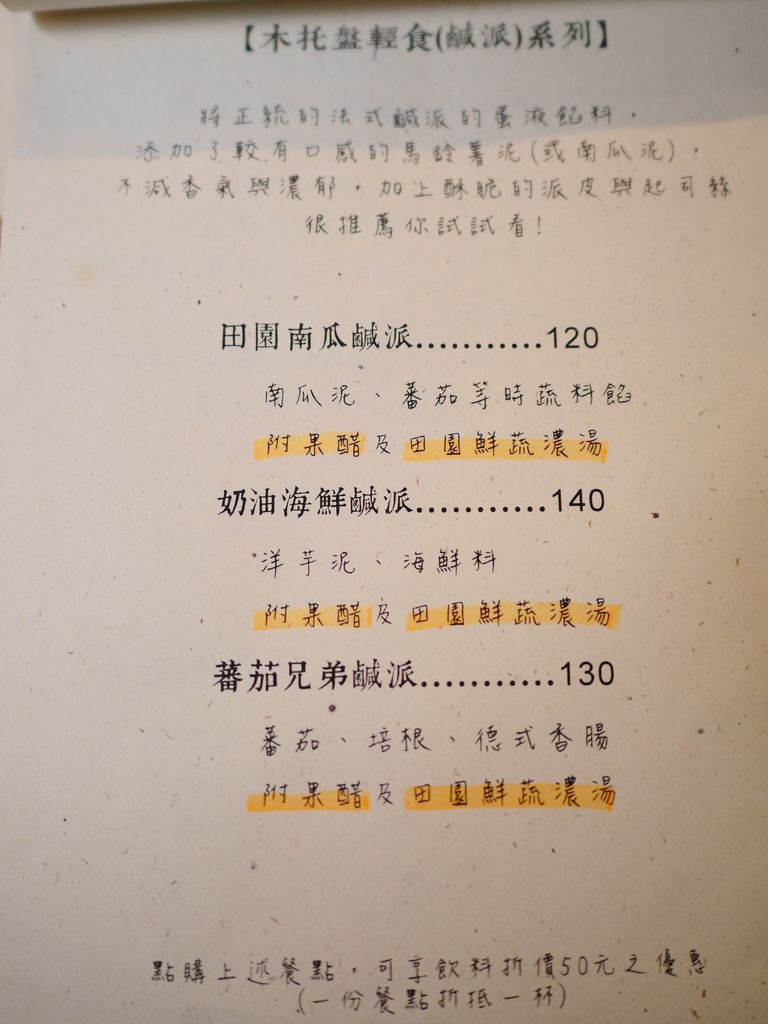 【木托盤輕食(鹹派)系列】
將正統的法式鹹派的蛋液餡料，
添加了較有口感的馬鈴薯泥(或南瓜泥)，
不減香氣與濃郁，加上酥脆的派皮與起司絲
很推薦你試試看!
田園南瓜鹹派...........120
南瓜泥、蕃茄等時蔬料餡
附果醋及田園鮮蔬濃湯
奶油海鮮鹹派...........140
洋芋泥、海鮮料
附果醋及田園鮮蔬濃湯
蕃茄兄弟鹹派...........130
蕃茄、培根、德式香腸
附果醋及田園鮮蔬濃湯
點購上述餐點，可享飲料折價50元之優惠
(一份餐點折抵一杯)